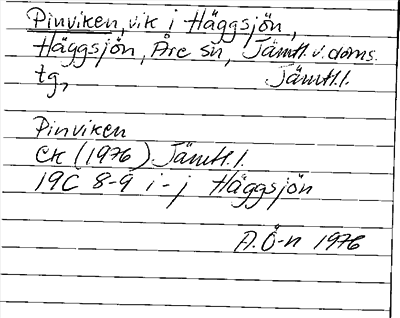 Pinviken, vik i Häggsjön,
Häggsjön, Åre sn, Jämtl. v. doms.
tg, Jämtl. l.
Pinviken
EK (1976). Jämtl. l.
19C 8-9 i-j Häggsjön
A. Ö-n 1976